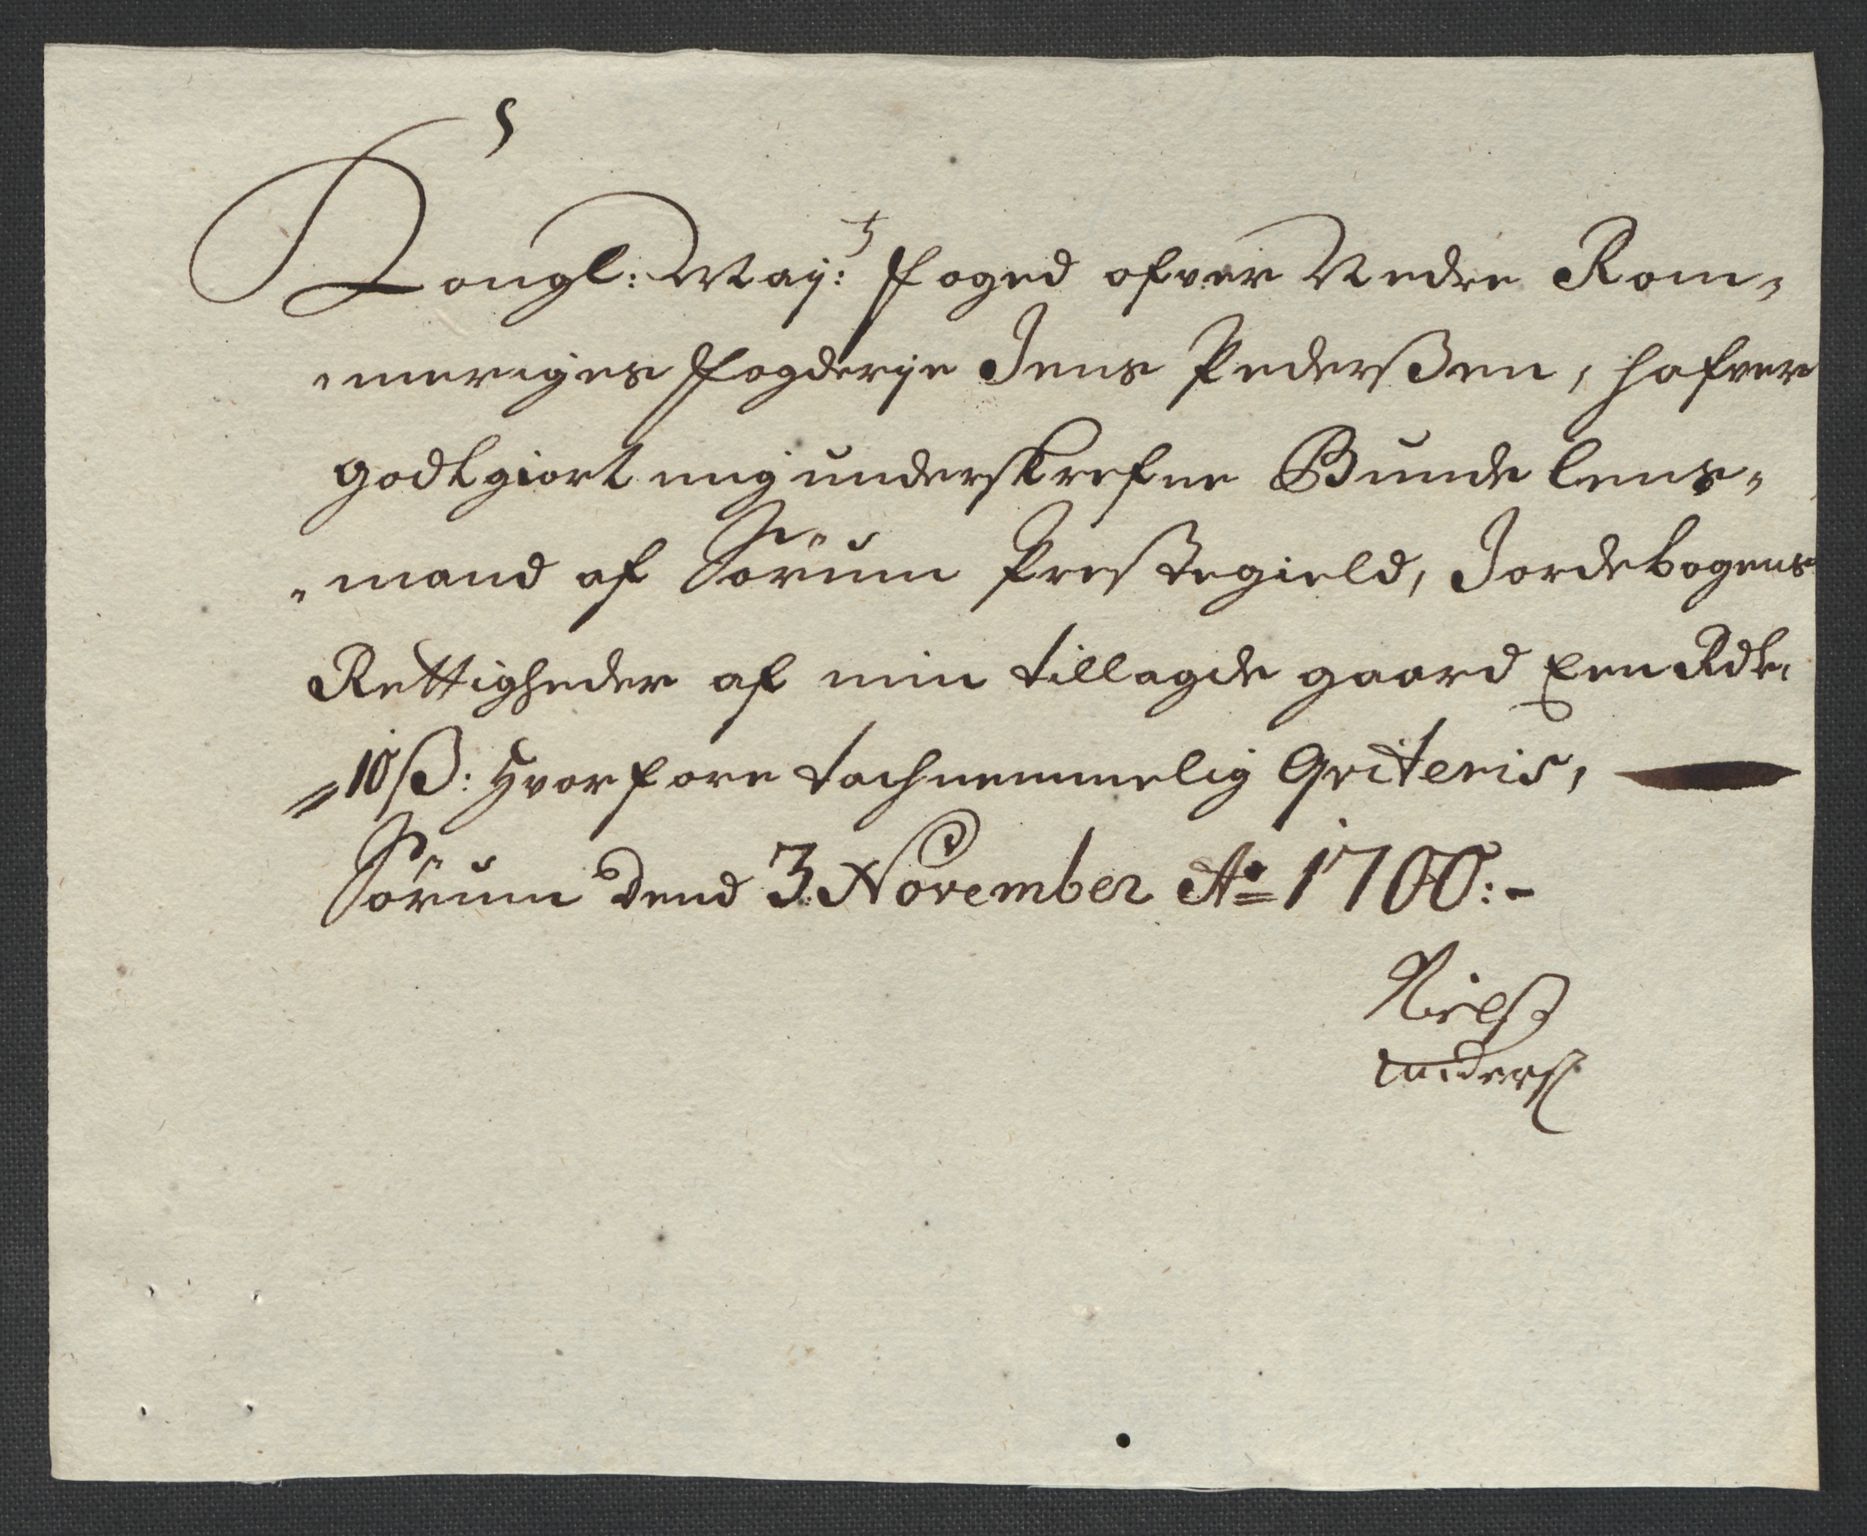 Kongl: May:tz Foged ofver Nedre Rom-
-meriges Fogderje Jens Pederßen, hafver
godtgiort mig underskrefne Bunde lens-
-mand af Sörum Prestegield, Jordebogens
Rettigheder af min tillagde gaard Een Rdr.
10 ß: hvorfore tachnemmelig Qviteris,
Sörum dend 3. November Ao 1700:-
Nielß
Anderß